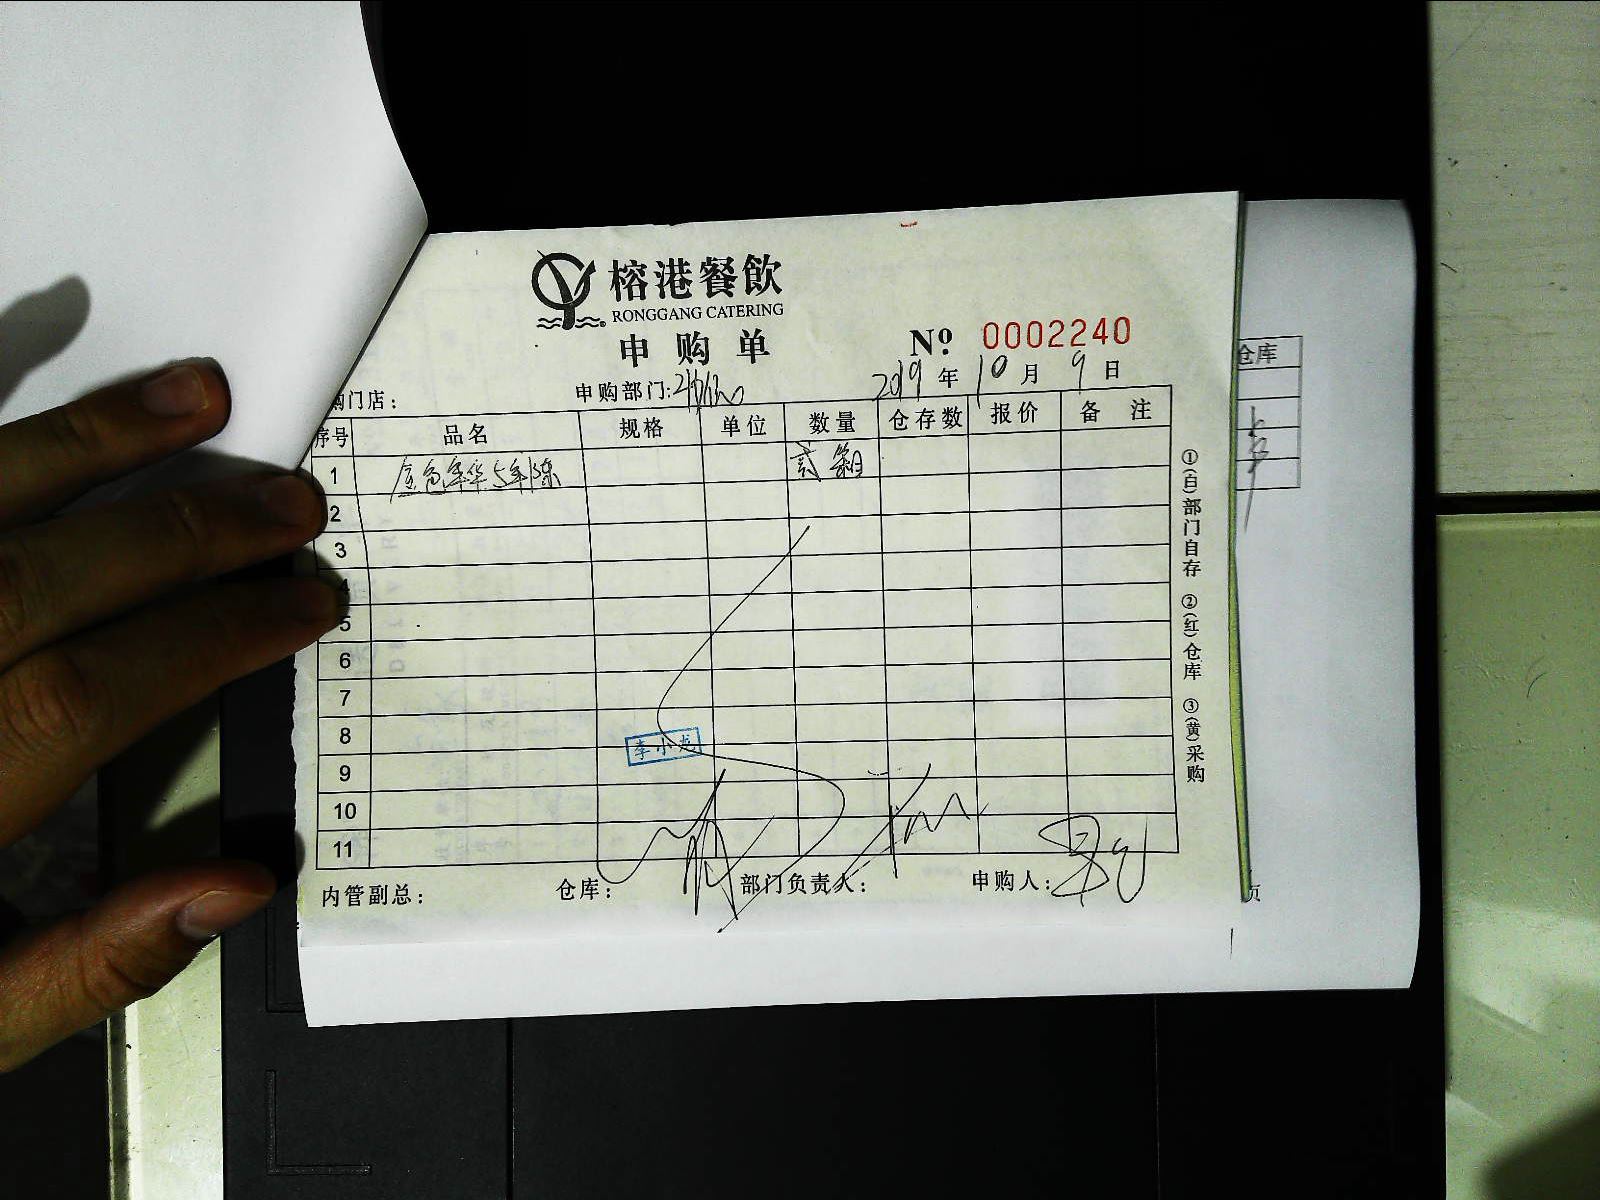 榕港餐飲
RONGGANG CATERING
申购单
Nº 0002240
购门店：
申购部门:
2019年10月9日
序号 品名 规格 单位 数量 仓存数 报价 备注
1 金色年华5年陈 贰箱
2
3
4
5
6
7
8
李小龙
9
10
11
内管副总： 仓库： 部门负责人： 申购人：
①(白)部门自存 ②(红)仓库 ③(黄)采购
仓库
员